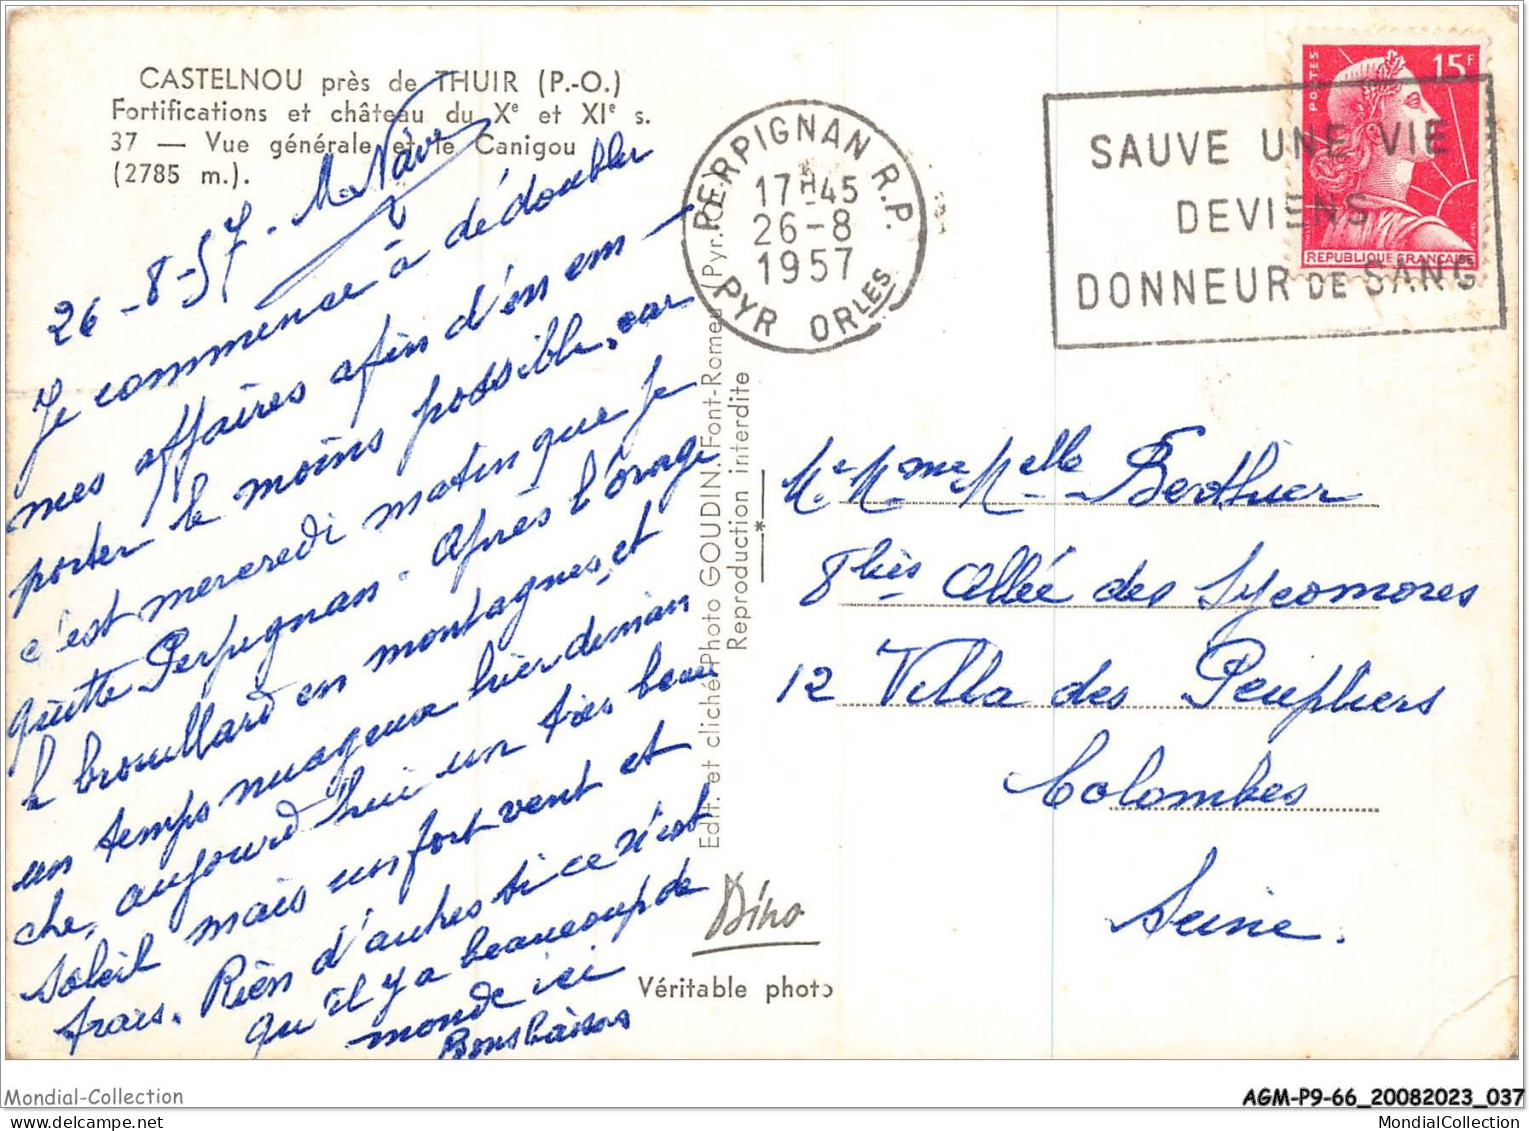 CASTELNOU près de THUIR (P.-O.)
Fortifications et château du Xe et XIe s.
37 — Vue générale et le Canigou
(2785 m.).
26-8-57.
Je commence à dédoubler
mes affaires afin d'en em-
porter le moins possible, car
c'est mercredi matin que je
quitte Perpignan. Après l'orage
le brouillard en montagnes, et
un temps nuageux hier diman
che, aujourd'hui un très beau
soleil mais un fort vent et
frais. Rien d'autres si ce n'est
qu'il y a beaucoup de
monde ici
Bons baisers
Edit. et cliché Photo GOUDIN. Font-Romeu (Pyr.-Or.)
Reproduction interdite
Dino
Véritable photo
PERPIGNAN R.P.
17H45
26-8
1957
PYR. ORLES
SAUVE UNE VIE
DEVIENS
DONNEUR DE SANG
POSTES
15F
REPUBLIQUE FRANÇAISE
Mr Mme Melle Berthier
8 bis Allée des Sycomores
12 Villa des Peupliers
Colombes
Seine.
Mondial-Collection
AGM-P9-66_20082023_037
MondialCollection